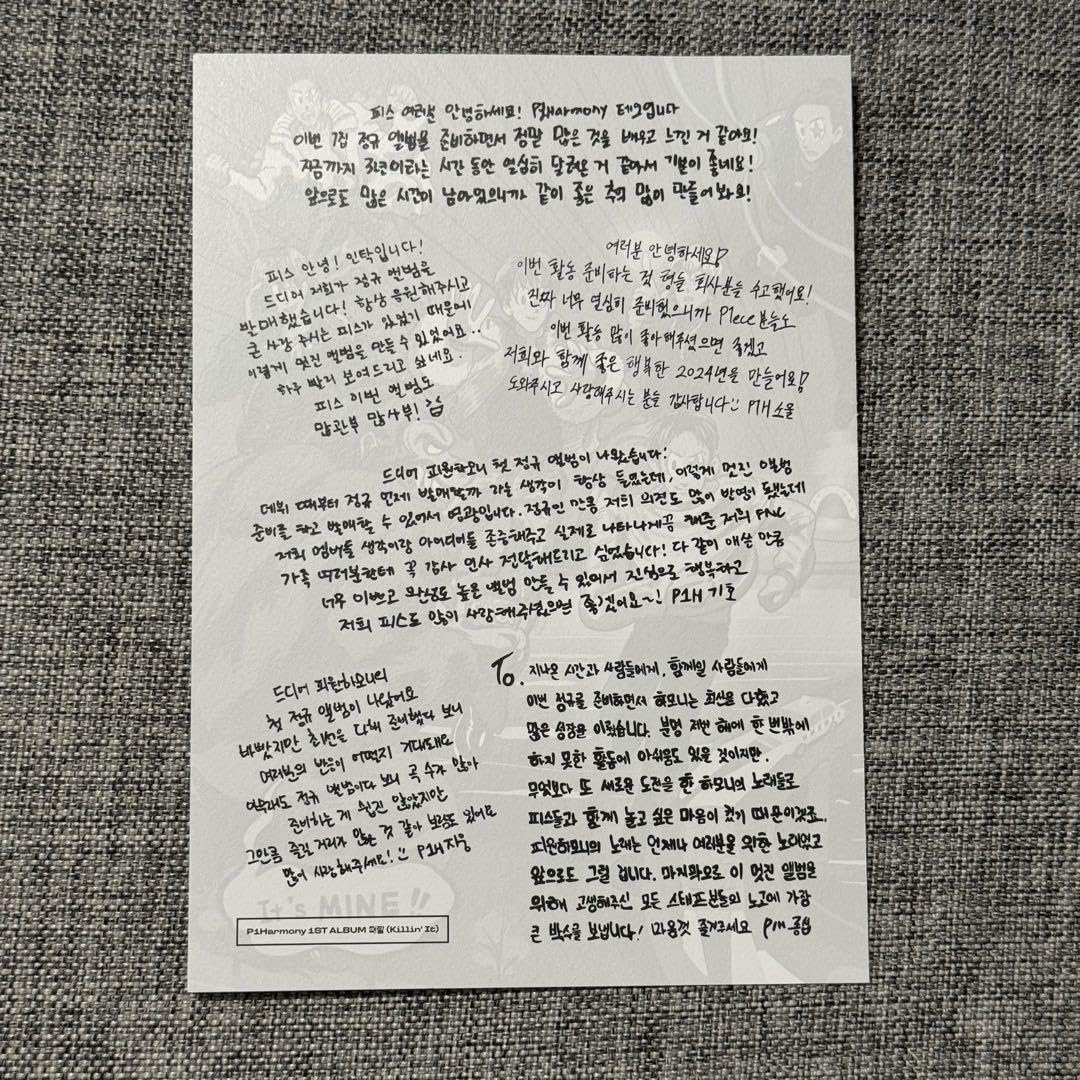 피스 여러분 안녕하세요! P1Harmony 테오입니다
이번 1집 정규 앨범을 준비하면서 정말 많은 것을 배우고 느낀 거 같아요!
지금까지 3년이라는 시간 동안 열심히 달려온 거 같아서 기분이 좋네요!
앞으로도 많은 시간이 남아있으니까 같이 좋은 추억 많이 만들어 봐요!
피스 안녕! 인탁입니다!
드디어 저희가 정규 앨범을
발매했습니다! 항상 응원해주시고
큰 사랑 주시는 피스가 있었기 때문에
이렇게 멋진 앨범을 만들 수 있었어요..
하루 빨리 보여드리고 싶네요.
피스 이번 앨범도
많관부 많사부!
여러분 안녕하세요!
이번 활동 준비하는 것 형들 회사분들 수고했어요!
진짜 너무 열심히 준비했으니까 P1ece분들도
이번 활동 많이 좋아해주셨으면 좋겠고
저희와 함께 좋은 행복한 2024년을 만들어요!
도와주시고 사랑해주시는 분들 감사합니다 P1H 소울
드디어 피원하모니 첫 정규 앨범이 나왔습니다!
데뷔 때부터 정규 언제 발매할까 라는 생각이 항상 들었는데, 이렇게 멋진 앨범
준비를 하고 발매할 수 있어서 영광입니다. 정규인 만큼 저희 의견도 많이 반영이 됐는데
저희 멤버들 생각이랑 아이디어들 존중해주고 실제로 나타나게끔 해준 저희 FNC
가족 여러분한테 꼭 감사 인사 전달해드리고 싶었습니다! 다 같이 애쓴 만큼
너무 이쁘고 완성도 높은 앨범 만들 수 있어서 진심으로 행복하고
저희 피스도 많이 사랑해주셨으면 좋겠어요~! P1H 기호
드디어 피원하모니의
첫 정규 앨범이 나왔어요
바빴지만 최선을 다해 준비했다 보니
여러분의 반응이 어떨지 기대돼요
아무래도 정규 앨범이다 보니 곡 수가 많아
준비하는 게 쉽진 않았지만
그만큼 즐길 거리가 많은 것 같아 보람도 있어요
많이 사랑해주세요! P1H 지웅
To. 지나온 시간과 사람들에게, 함께일 사람들에게
이번 정규를 준비하면서 하모니는 최선을 다했고
많은 성장을 이뤘습니다. 분명 저번 해에 한 번밖에
하지 못한 활동에 아쉬움도 있을 것이지만.
무엇보다 또 새로운 도전을 한 하모니의 노래들로
피스들과 함께 놀고 싶은 마음이 컸기 때문이겠죠..
피원하모니의 노래는 언제나 여러분을 위한 노래였고
앞으로도 그럴 겁니다. 마지막으로 이 멋진 앨범을
위해 고생해주신 모든 스태프분들의 노고에 가장
큰 박수를 보냅니다! 마음껏 즐겨주세요 P1H 종섭
It's MINE!!
P1Harmony 1ST ALBUM 때깔 (Killin' It)